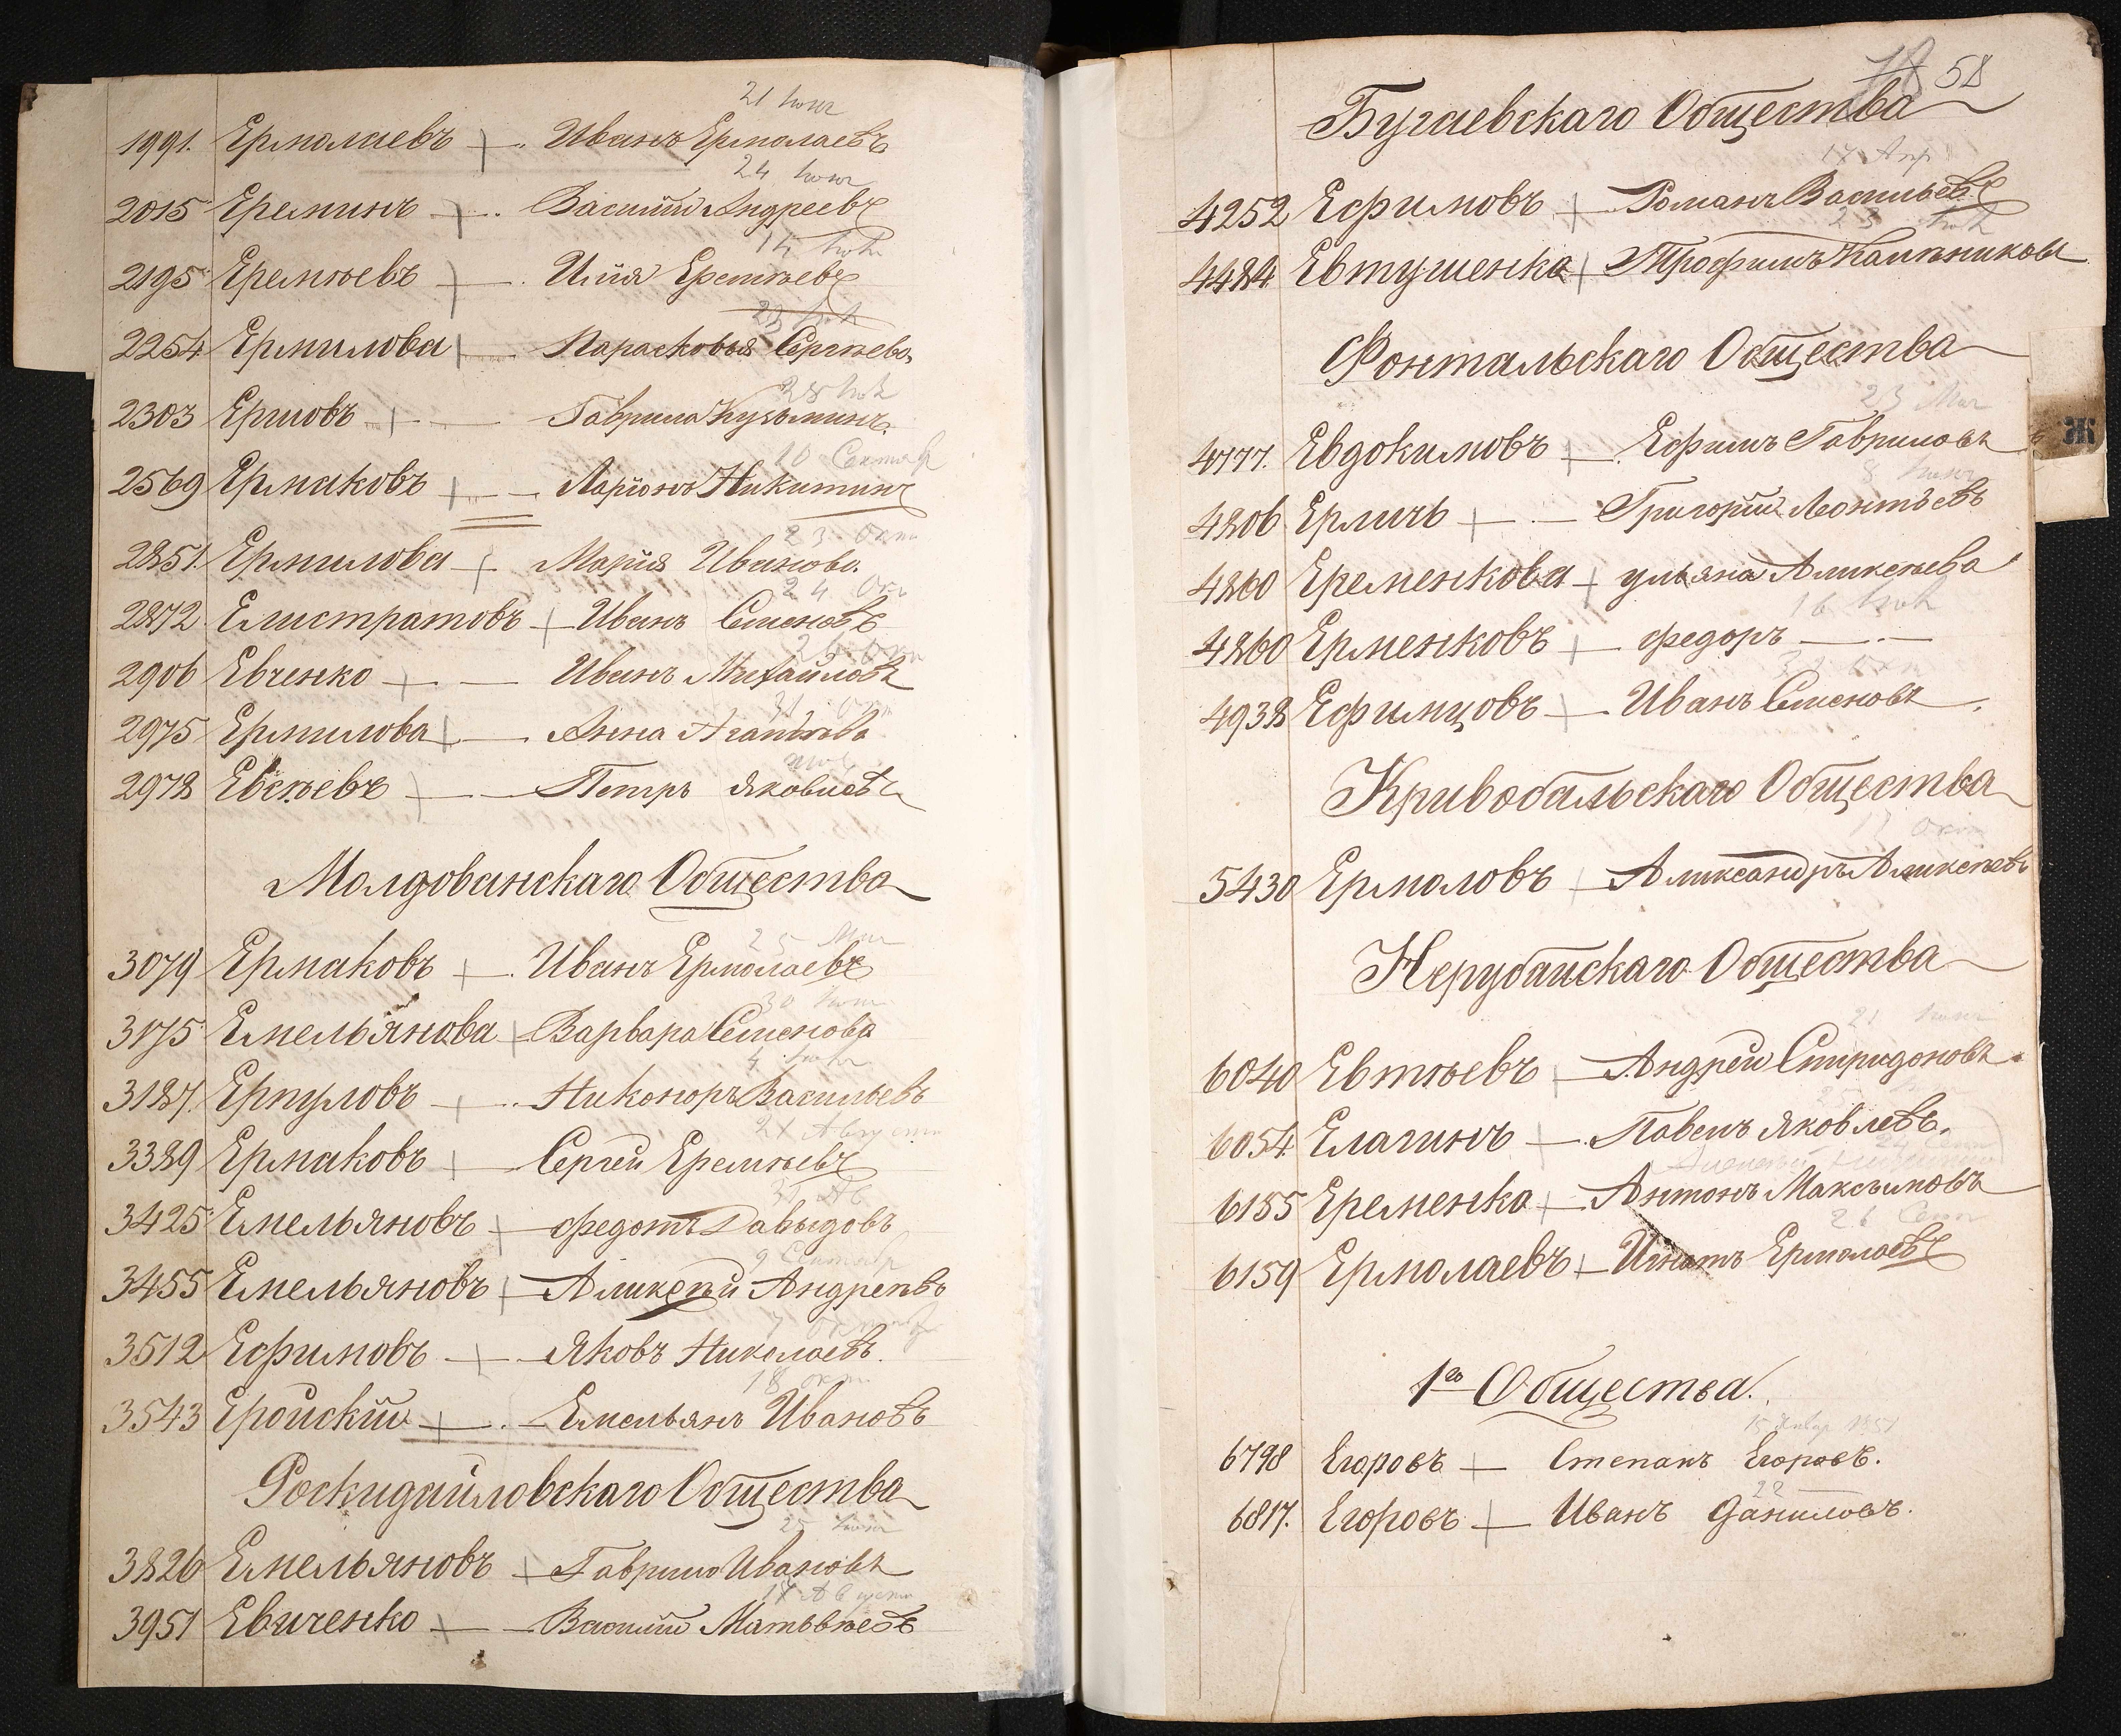 21 Июн
1991. Ермолаевъ Иванъ Ермолаевъ
24 Июн
2015 Ереминъ Василий Андреевъ
14
2195 Еремѣевъ Илия Еремѣевъ
23
2254 Ермилова Парасковья Сергѣева
28
2303 Ершовъ Гаврила Кузьминъ.
10 Сентяб
2569 Ермаковъ Ларіонъ Никитинъ
23 Окт
2851. Ермилова Марія Иванова.
24 Окт
2872 Елистратовъ Иванъ Семеновъ
26 Окт
2906 Евченко Иванъ Михайловъ
31 Окт
2975 Ермилова Анна
2978 Евсѣевъ Петръ Яковлевъ
Молдованскаго Общества
25 Мая
3079 Ермаковъ Иванъ Ермолаевъ
30
3175 Емельянова Варвара Семенова
4
3187. Ермуловъ Никоноръ Васильевъ
21 Август
3389 Ермаковъ Сергей Еремѣевъ
31 Ав
3425 Емельяновъ Федотъ Давыдовъ
9 Сентябр
3455 Емельяновъ Аликсѣй Андреѣвъ
7 Октябр
3512 Ефимовъ Яковъ Николаевъ.
18 Окт
3543 Еройскій Емельянъ Ивановъ
Роскидайловскаго Общества
25 Июн
3826 Емельяновъ Гаврило Ивановъ
17 Август
3951 Евиченко Василий Матьвѣевъ
58
Бугаевскаго Общества
17 Апр
4252 Ефимовъ Романъ Васильевъ
23
4484 Евтушенко Трофимъ
Фонтальскаго Общества
23 Мая
4777. Евдокимовъ Ефимъ Гавриловъ
8
4806 Ерличъ Григорій Леонтьевъ
4860 Еременкова ульяна Аликсѣева
16
4860 Ерменковъ Федоръ
4938 Ефимцовъ Иванъ Семеновъ
Ж
Кривобальскаго Общества
12 Окт
5430 Ермоловъ Аликсандръ Аликсѣевъ
Нерубайскаго Общества
21
6040 Евтѣевъ Андрей Спиридоновъ.
25
6054 Елагинъ Павелъ Яковлевъ.
6155 Еременко Антонъ Максимовъ
26 Сент
6159 Ермолаевъ Игнатъ Ермолаевъ
1го Общества.
15 Январ 1851
6798 Егоровъ Степанъ Егоровъ.
22
6817. Егоровъ Иванъ Даниловъ.